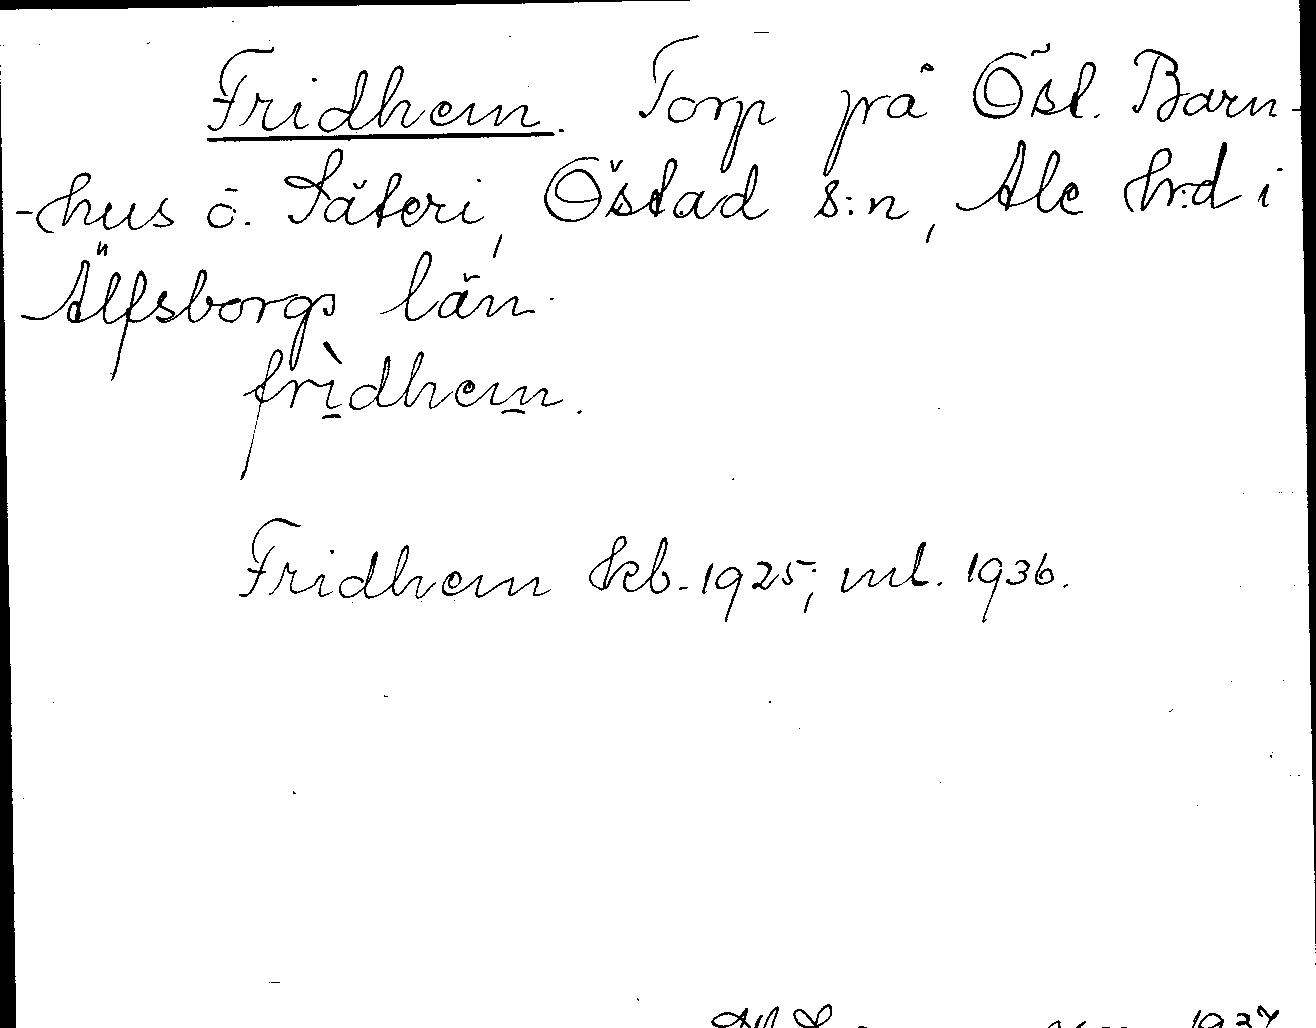 Fridhem. Torp på Ösl. Barn-
-hus ö. Säteri, Östad s:n, Ale hrd i
Älfsborgs län.
frìdhem.
Fridhem kb. 1925; ml. 1936.
1937